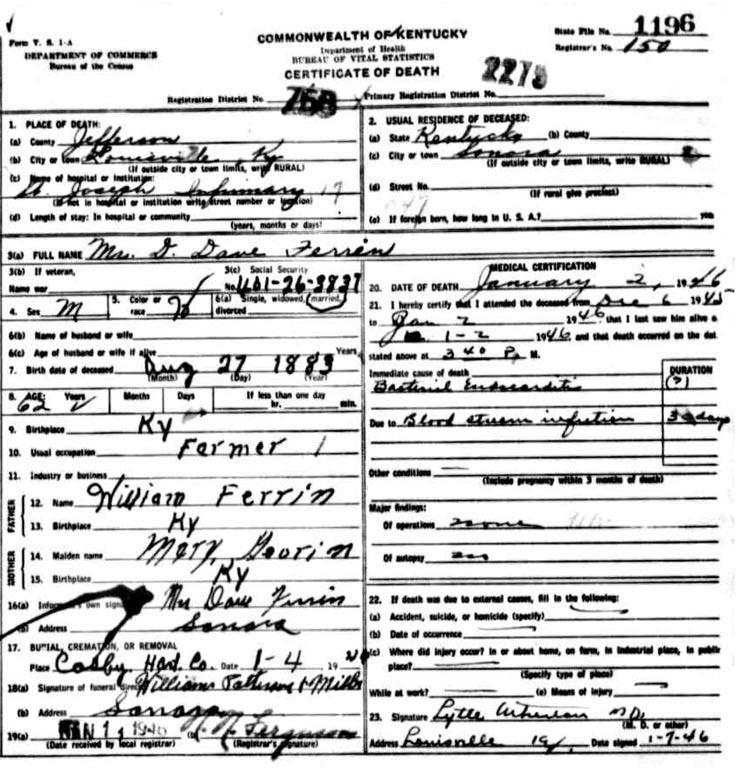 Form V. S. 1-A
DEPARTMENT OF COMMERCE
Bureau of the Census
COMMONWEALTH OF KENTUCKY
Department of Health
BUREAU OF VITAL STATISTICS
CERTIFICATE OF DEATH
State File No. 1196
Registrar's No. 150
2275
Registration District No. 755 Primary Registration District No.
1. PLACE OF DEATH:
(a) County Jefferson
(b) City or town Louisville Ky
(If outside city or town limits, write RURAL)
(c) Name of hospital or institution:
St. Joseph Infirmary 17
(If not in hospital or institution write street number or location)
(d) Length of stay: In hospital or community
(years, months or days)
2. USUAL RESIDENCE OF DECEASED:
(a) State Kentucky (b) County
(c) City or town Sonora
(If outside city or town limits, write RURAL)
(d) Street No.
(If rural give precinct)
(e) If foreign born, how long in U. S. A.? yes
3(a) FULL NAME Mr. D. Dave Ferrin
3(b) If veteran,
Name war
3(c) Social Security
No. 401-26-3837
4. Sex M
5. Color or race W
6(a) Single, widowed, married, divorced
6(b) Name of husband or wife
6(c) Age of husband or wife if alive Years
7. Birth date of deceased Aug 27 1883
(Month) (Day) (Year)
8. AGE: Years Months Days If less than one day
62 hr. min.
9. Birthplace Ky
10. Usual occupation Farmer 1
11. Industry or business
FATHER
12. Name William Ferrin
13. Birthplace Ky
MOTHER
14. Maiden name Mary
15. Birthplace Ky
16(a) Informant's own signature Mrs Dave Ferrin
(b) Address Sonora
17. BURIAL, CREMATION, OR REMOVAL
Place Cosby, Hart Co. Date 1-4 1946
18(a) Signature of funeral director Williams Patterson & Miller
(b) Address Sonora
19(a) JAN 11 1946 (b) Ferguson
(Date received by local registrar) (Registrar's signature)
MEDICAL CERTIFICATION
20. DATE OF DEATH January 2, 1946
21. I hereby certify that I attended the deceased from Dec 6 1945
to Jan 2 1946, that I last saw him alive o
1-2 1946 and that death occurred on the dat
stated above at 3 40 P M.
Immediate cause of death
DURATION
Bacterial Endocarditis (?)
Due to Blood stream infection 30 days
Other conditions
(Include pregnancy within 3 months of death)
Major findings:
Of operations none
Of autopsy no
22. If death was due to external causes, fill in the following:
(a) Accident, suicide, or homicide (specify)
(b) Date of occurrence
(c) Where did injury occur? In or about home, on farm, in industrial place, in public
place?
(Specify type of place)
While at work? (e) Means of injury
23. Signature Lytle Atherton MD.
(M. D. or other)
Address Louisville Ky Date signed 1-7-46